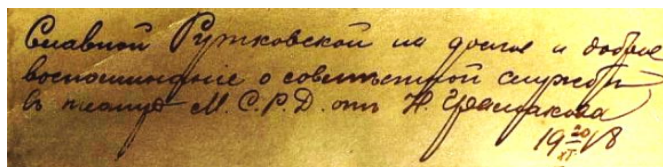 Славной Рутковской на долгое и доброе
воспоминание о совместной службѣ
въ театрѣ М. С. Р. Д. отъ Н.
19 20/XI 18